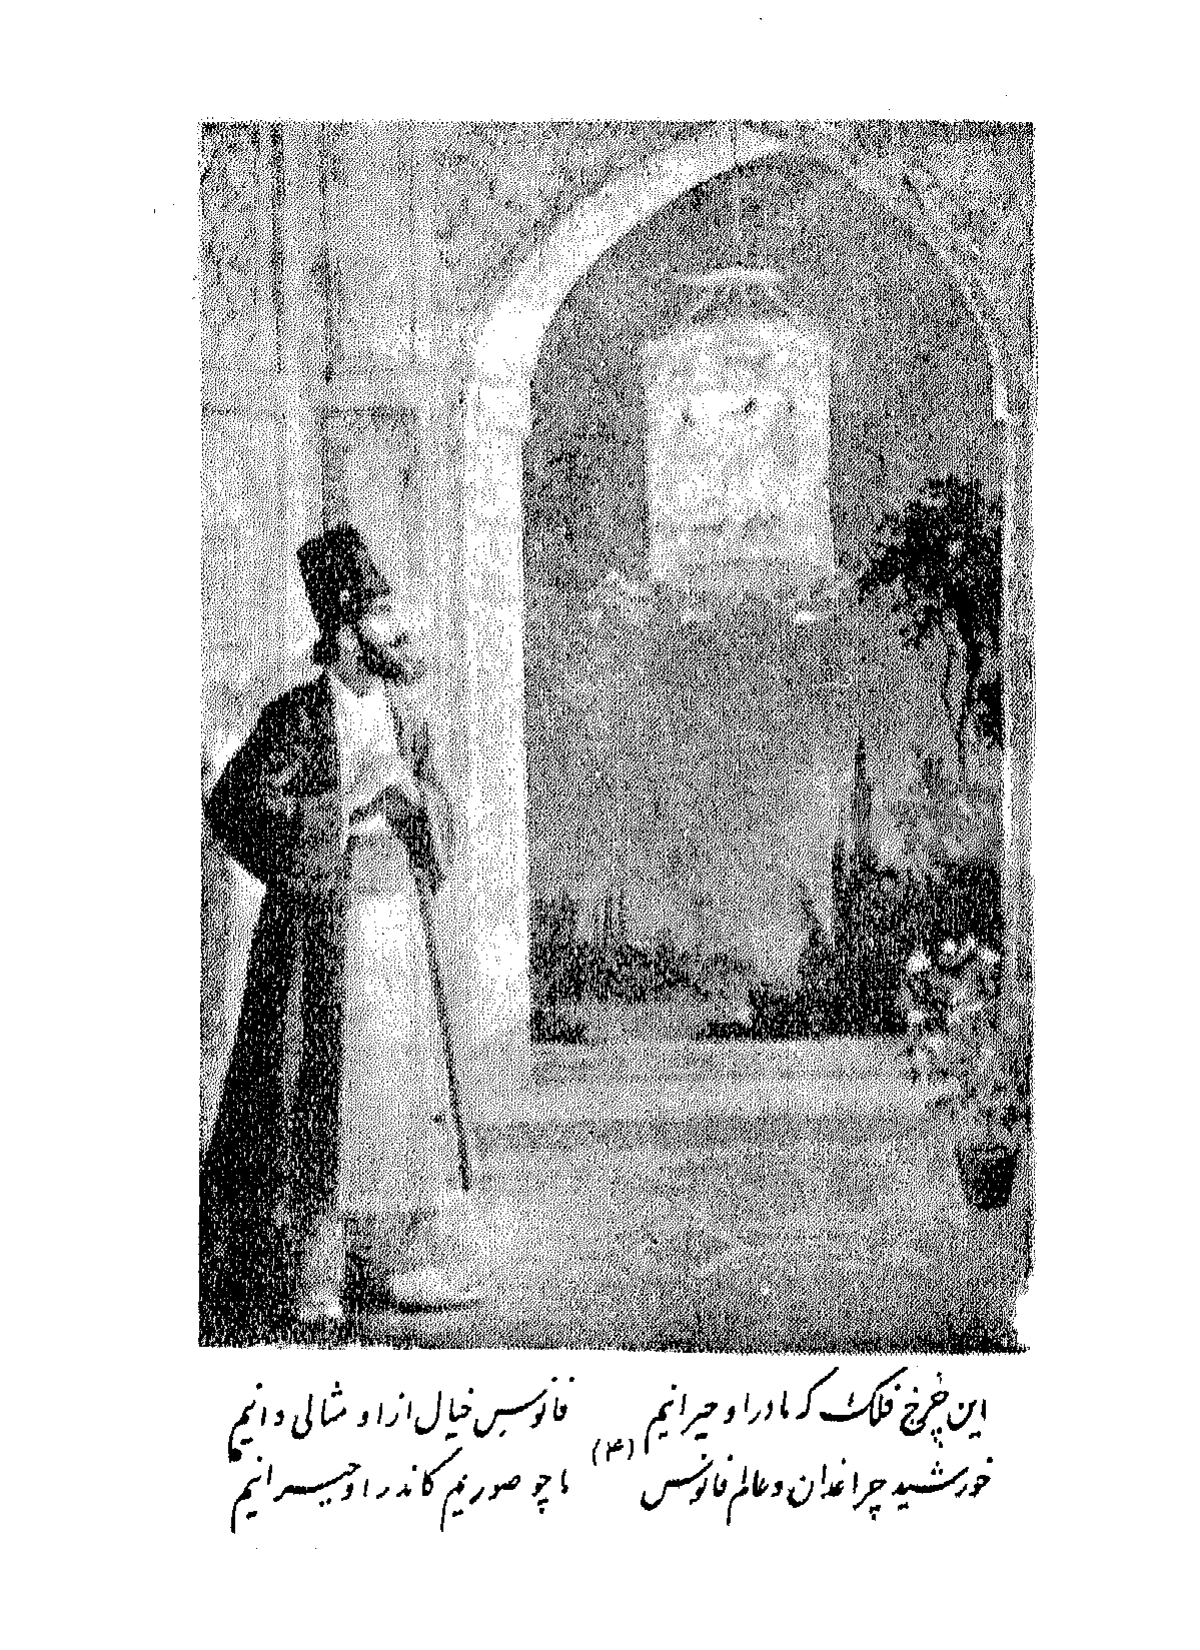 این چرخ فلک که ما در او حیرانیم فانوس خیال از او مثالی دانیم
(۴)
خورشید چراغدان و عالم فانوس ما چو صوریم کاندر او حیرانیم